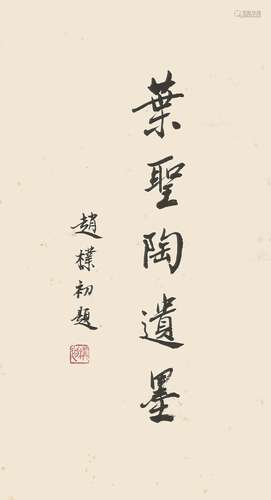 葉聖陶遺墨
趙樸初題